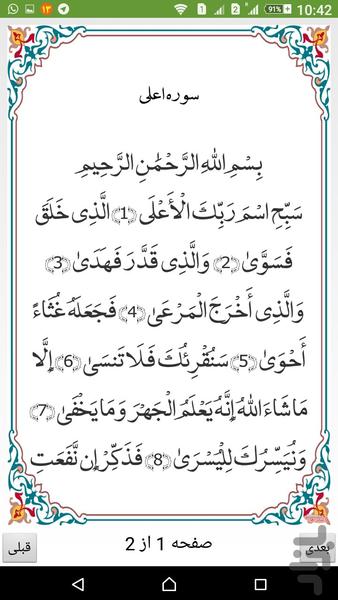 ۱۳ 1 2 91% 10:42
سوره اعلی
بِسْمِ اللهِ الرَّحْمٰنِ الرَّحِيمِ
سَبِّحِ اسْمَ رَبِّكَ الْأَعْلَى ﴿1﴾ الَّذِي خَلَقَ
فَسَوَّىٰ ﴿2﴾ وَالَّذِي قَدَّرَ فَهَدَىٰ ﴿3﴾
وَالَّذِي أَخْرَجَ الْمَرْعَىٰ ﴿4﴾ فَجَعَلَهُ غُثَاءً
أَحْوَىٰ ﴿5﴾ سَنُقْرِئُكَ فَلَا تَنسَىٰ ﴿6﴾ إِلَّا
مَا شَاءَ اللهُ إِنَّهُ يَعْلَمُ الْجَهْرَ وَمَا يَخْفَىٰ ﴿7﴾
وَنُيَسِّرُكَ لِلْيُسْرَىٰ ﴿8﴾ فَذَكِّرْ إِن نَّفَعَتِ
بعدی صفحه 1 از 2 قبلی
بازار